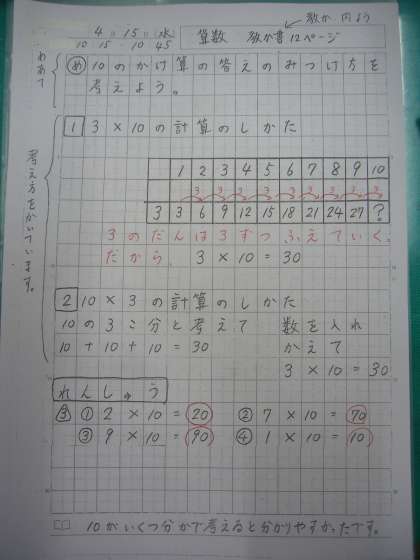 教か 内よう
4月15日(水) 算数 教か書12ページ
10:45 - 10:45
めあて
め 10のかけ算の答えのみつけ方を
考えよう。
考え方をかいています。
1 3×10の計算のしかた
1 2 3 4 5 6 7 8 9 10
3 3 3 3 3 3 3 3
3 3 6 9 12 15 18 21 24 27 ?
3のだんは3ずつふえていく。
だから 3×10=30
2 10×3の計算のしかた
10の3こ分と考えて 数を入れ
10+10+10=30 かえて
3×10=30
れんしゅう
3 ① 2×10=20 ② 7×10=70
③ 9×10=90 ④ 1×10=10
10がいくつ分かで考えると分かりやすかったです。